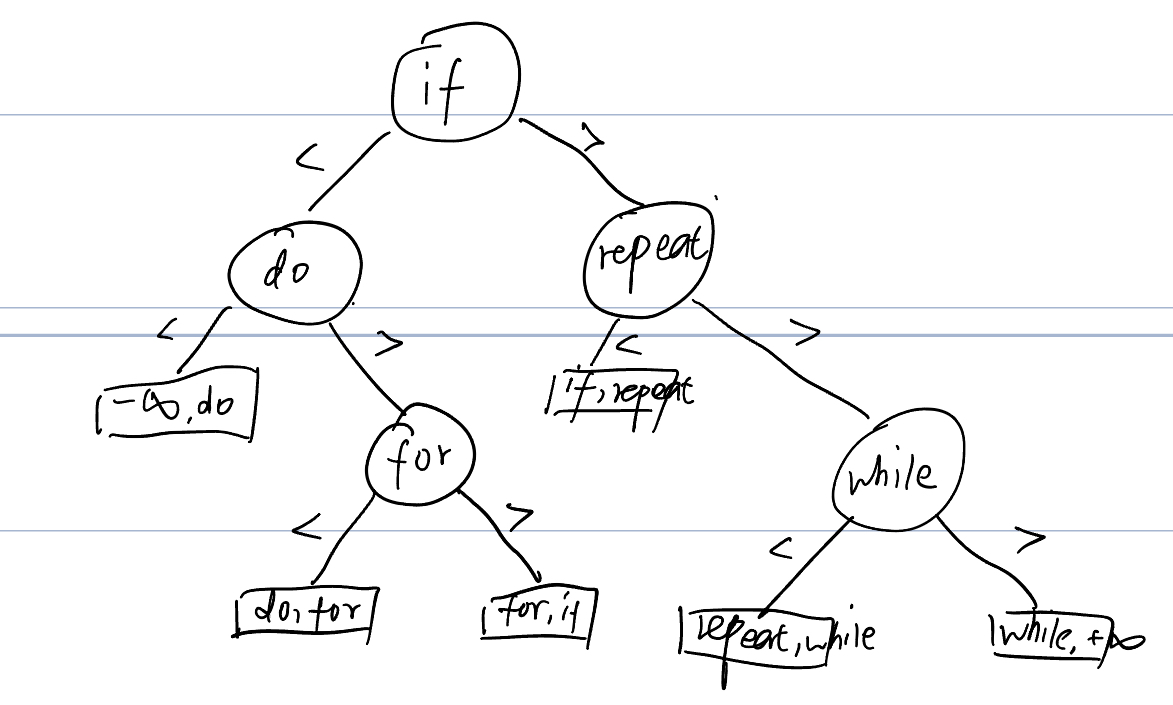 if
< >
do repeat
< > < >
-∞, do if, repeat
for while
< > < >
do, for for, if repeat, while while, +∞